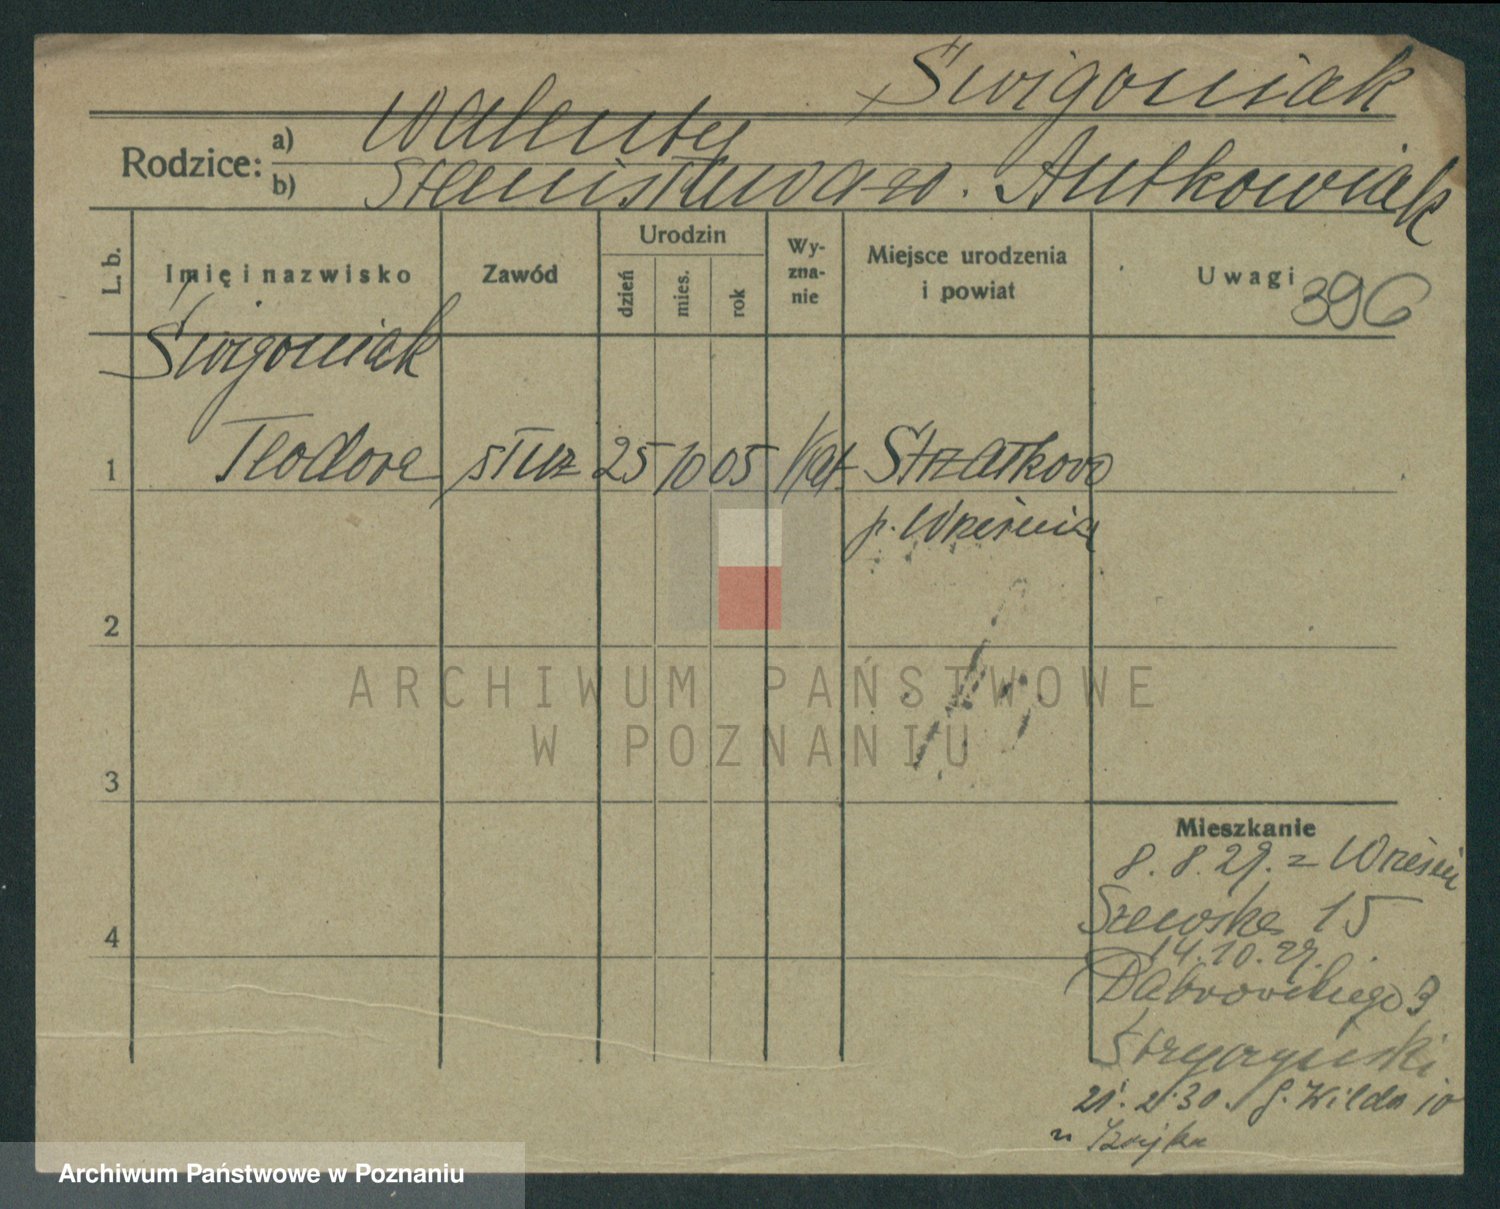 Świgoniak
Rodzice:
a) Walenty
b) Stanisława zd. Antkowiak
L. b.
Imię i nazwisko
Zawód
Urodzin
dzień
mies.
rok
Wy-
zna-
nie
Miejsce urodzenia
i powiat
Uwagi
396
Świgoniak
1 Teodora służ 25 10 05 kat Strzałkowo
p. Września
2
3
4
Mieszkanie
8. 8. 29. z Wrześni
Szewska 15
14. 10. 29.
Dąbrowskiego 3
Stryczyński
21. 2. 30. G. Wilda 10
u
ARCHIWUM PAŃSTWOWE
W POZNANIU
Archiwum Państwowe w Poznaniu